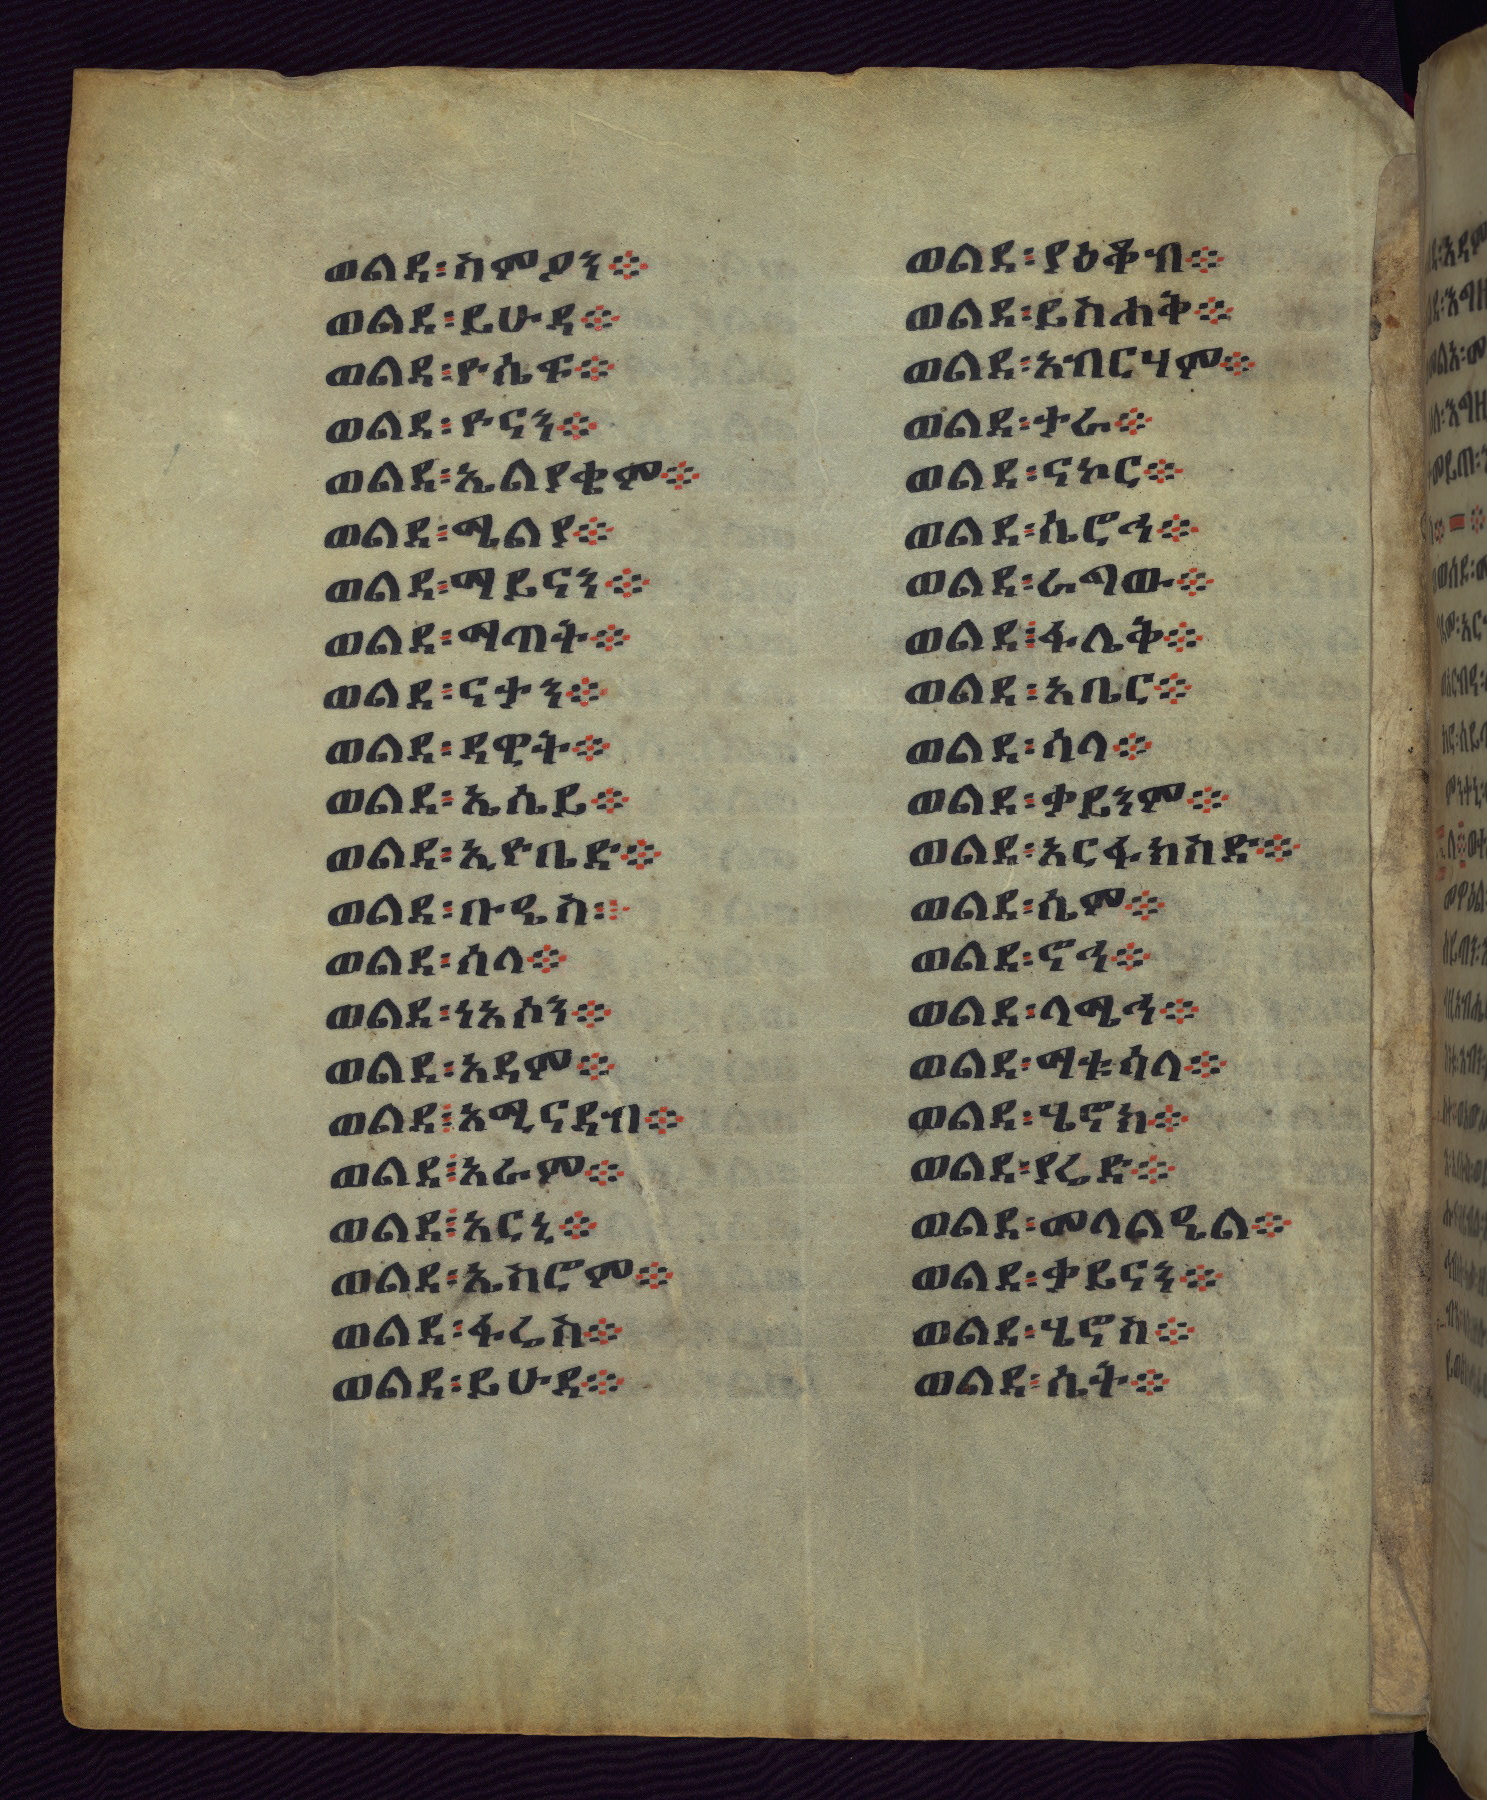 ወልደ፡ስምዖን፨
ወልደ፡ይሁዳ፨
ወልደ፡ዮሴፍ፨
ወልደ፡ዮናን፨
ወልደ፡ኤልያቂም፨
ወልደ፡ሜልያ፨
ወልደ፡ማይናን፨
ወልደ፡ማጣት፨
ወልደ፡ናታን፨
ወልደ፡ዳዊት፨
ወልደ፡እሴይ፨
ወልደ፡ኢዮቤድ፨
ወልደ፡ቡዔስ፨
ወልደ፡ሰላ፨
ወልደ፡ነአሶን፨
ወልደ፡አዳም፨
ወልደ፡አሚናዳብ፨
ወልደ፡አራም፨
ወልደ፡አርኒ፨
ወልደ፡ኤስሮም፨
ወልደ፡ፋሬስ፨
ወልደ፡ይሁዳ፨
ወልደ፡ያዕቆብ፨
ወልደ፡ይስሐቅ፨
ወልደ፡አብርሃም፨
ወልደ፡ታራ፨
ወልደ፡ናኮር፨
ወልደ፡ሴሮኅ፨
ወልደ፡ራጋው፨
ወልደ፡ፋሌቅ፨
ወልደ፡አቤር፨
ወልደ፡ሳላ፨
ወልደ፡ቃይንም፨
ወልደ፡አርፋክስድ፨
ወልደ፡ሴም፨
ወልደ፡ኖኅ፨
ወልደ፡ላሜኅ፨
ወልደ፡ማቱሳላ፨
ወልደ፡ሄኖክ፨
ወልደ፡ያሬድ፨
ወልደ፡መላልዔል፨
ወልደ፡ቃይናን፨
ወልደ፡ሄኖስ፨
ወልደ፡ሴት፨